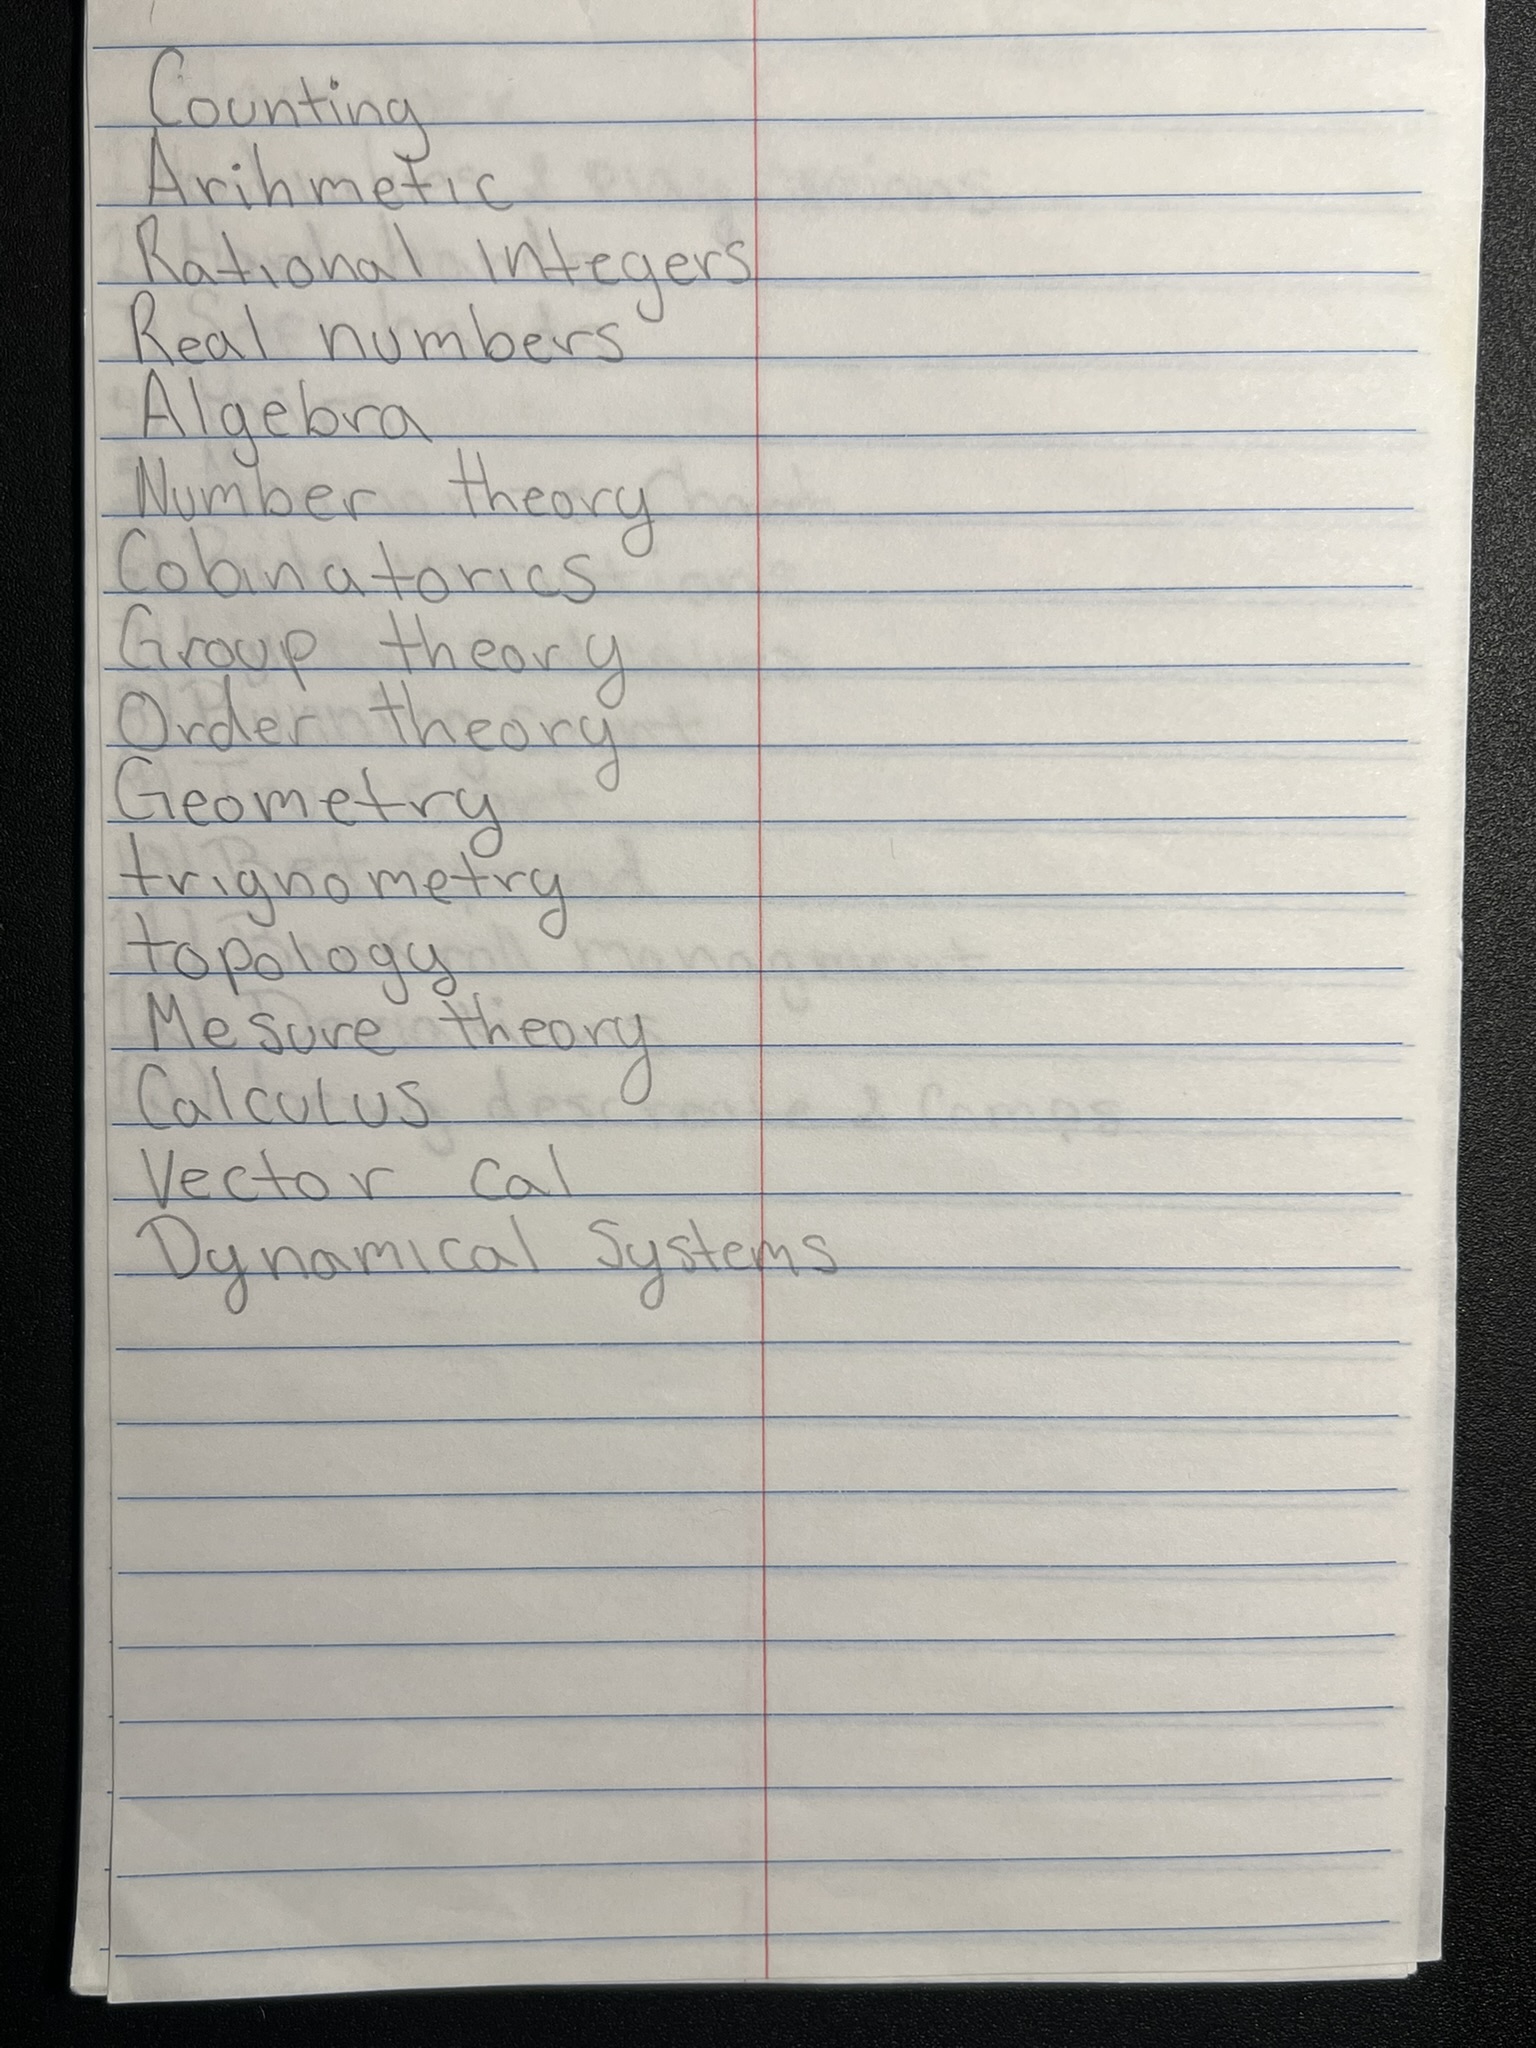 Counting
Arihmetic
Rational integers
Real numbers
Algebra
Number theory
Cobinatorics
Group theory
Order theory
Geometry
trignometry
topology
Mesure theory
Calculus
Vector cal
Dynamical Systems